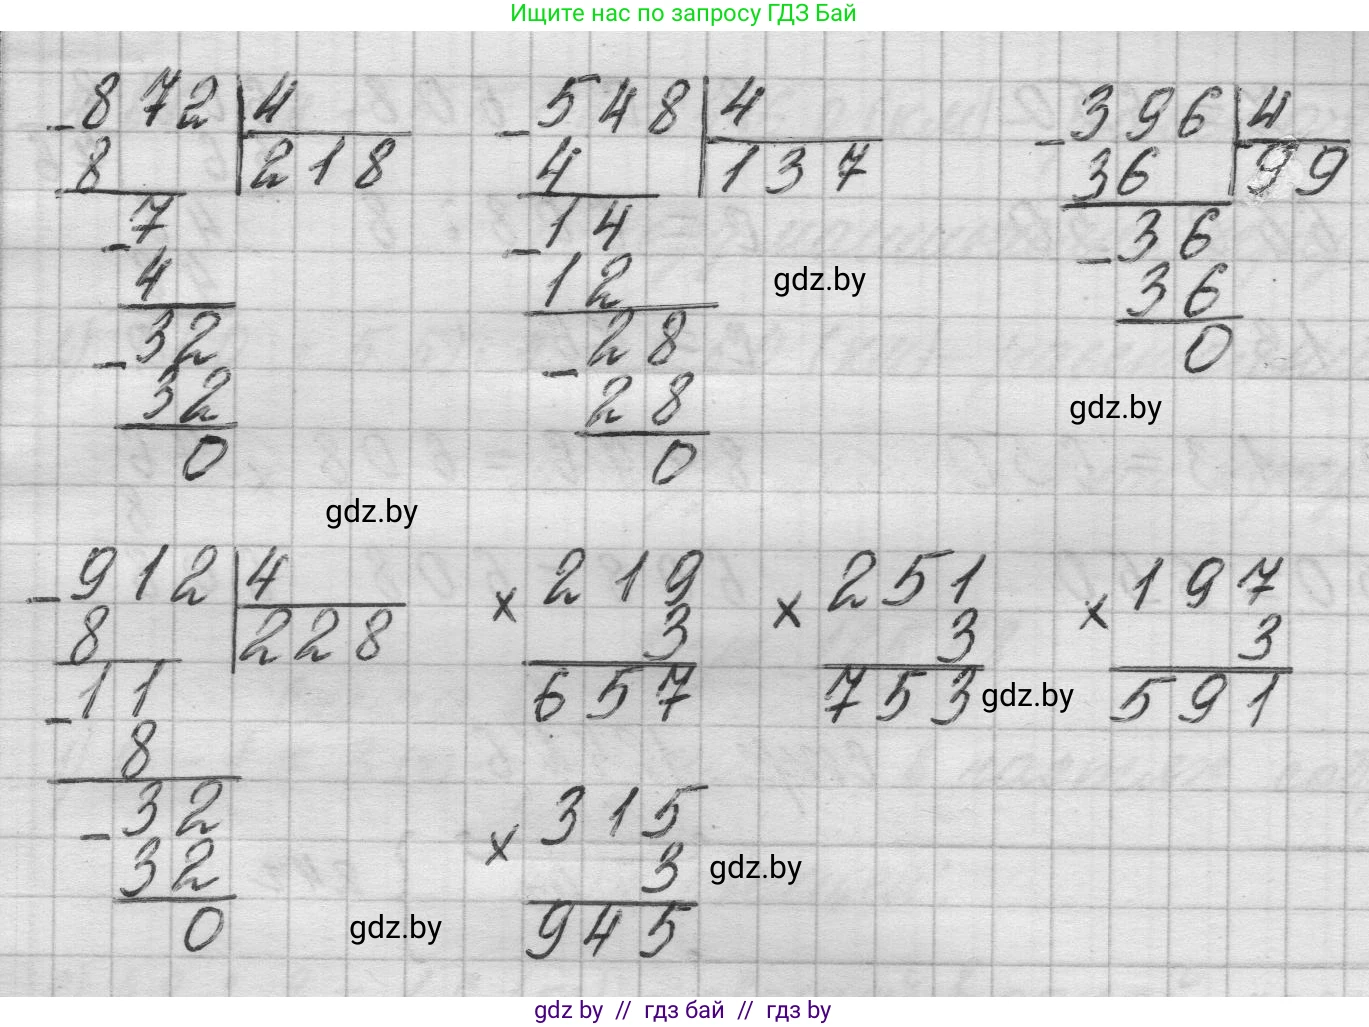 Ищите нас по запросу ГДЗ Бай
- 872 | 4
8 | 218
- 7
4
- 32
32
0
gdz.by
- 548 | 4
4 | 137
- 14
12
- 28
28
0
gdz.by
- 396 | 4
36 | 99
- 36
36
0
gdz.by
- 912 | 4
8 | 228
- 11
8
- 32
32
0
gdz.by
x 219
3
657
x 251
3
753
gdz.by
x 197
3
591
x 315
3
945
gdz.by
gdz by // гдз бай // гдз by